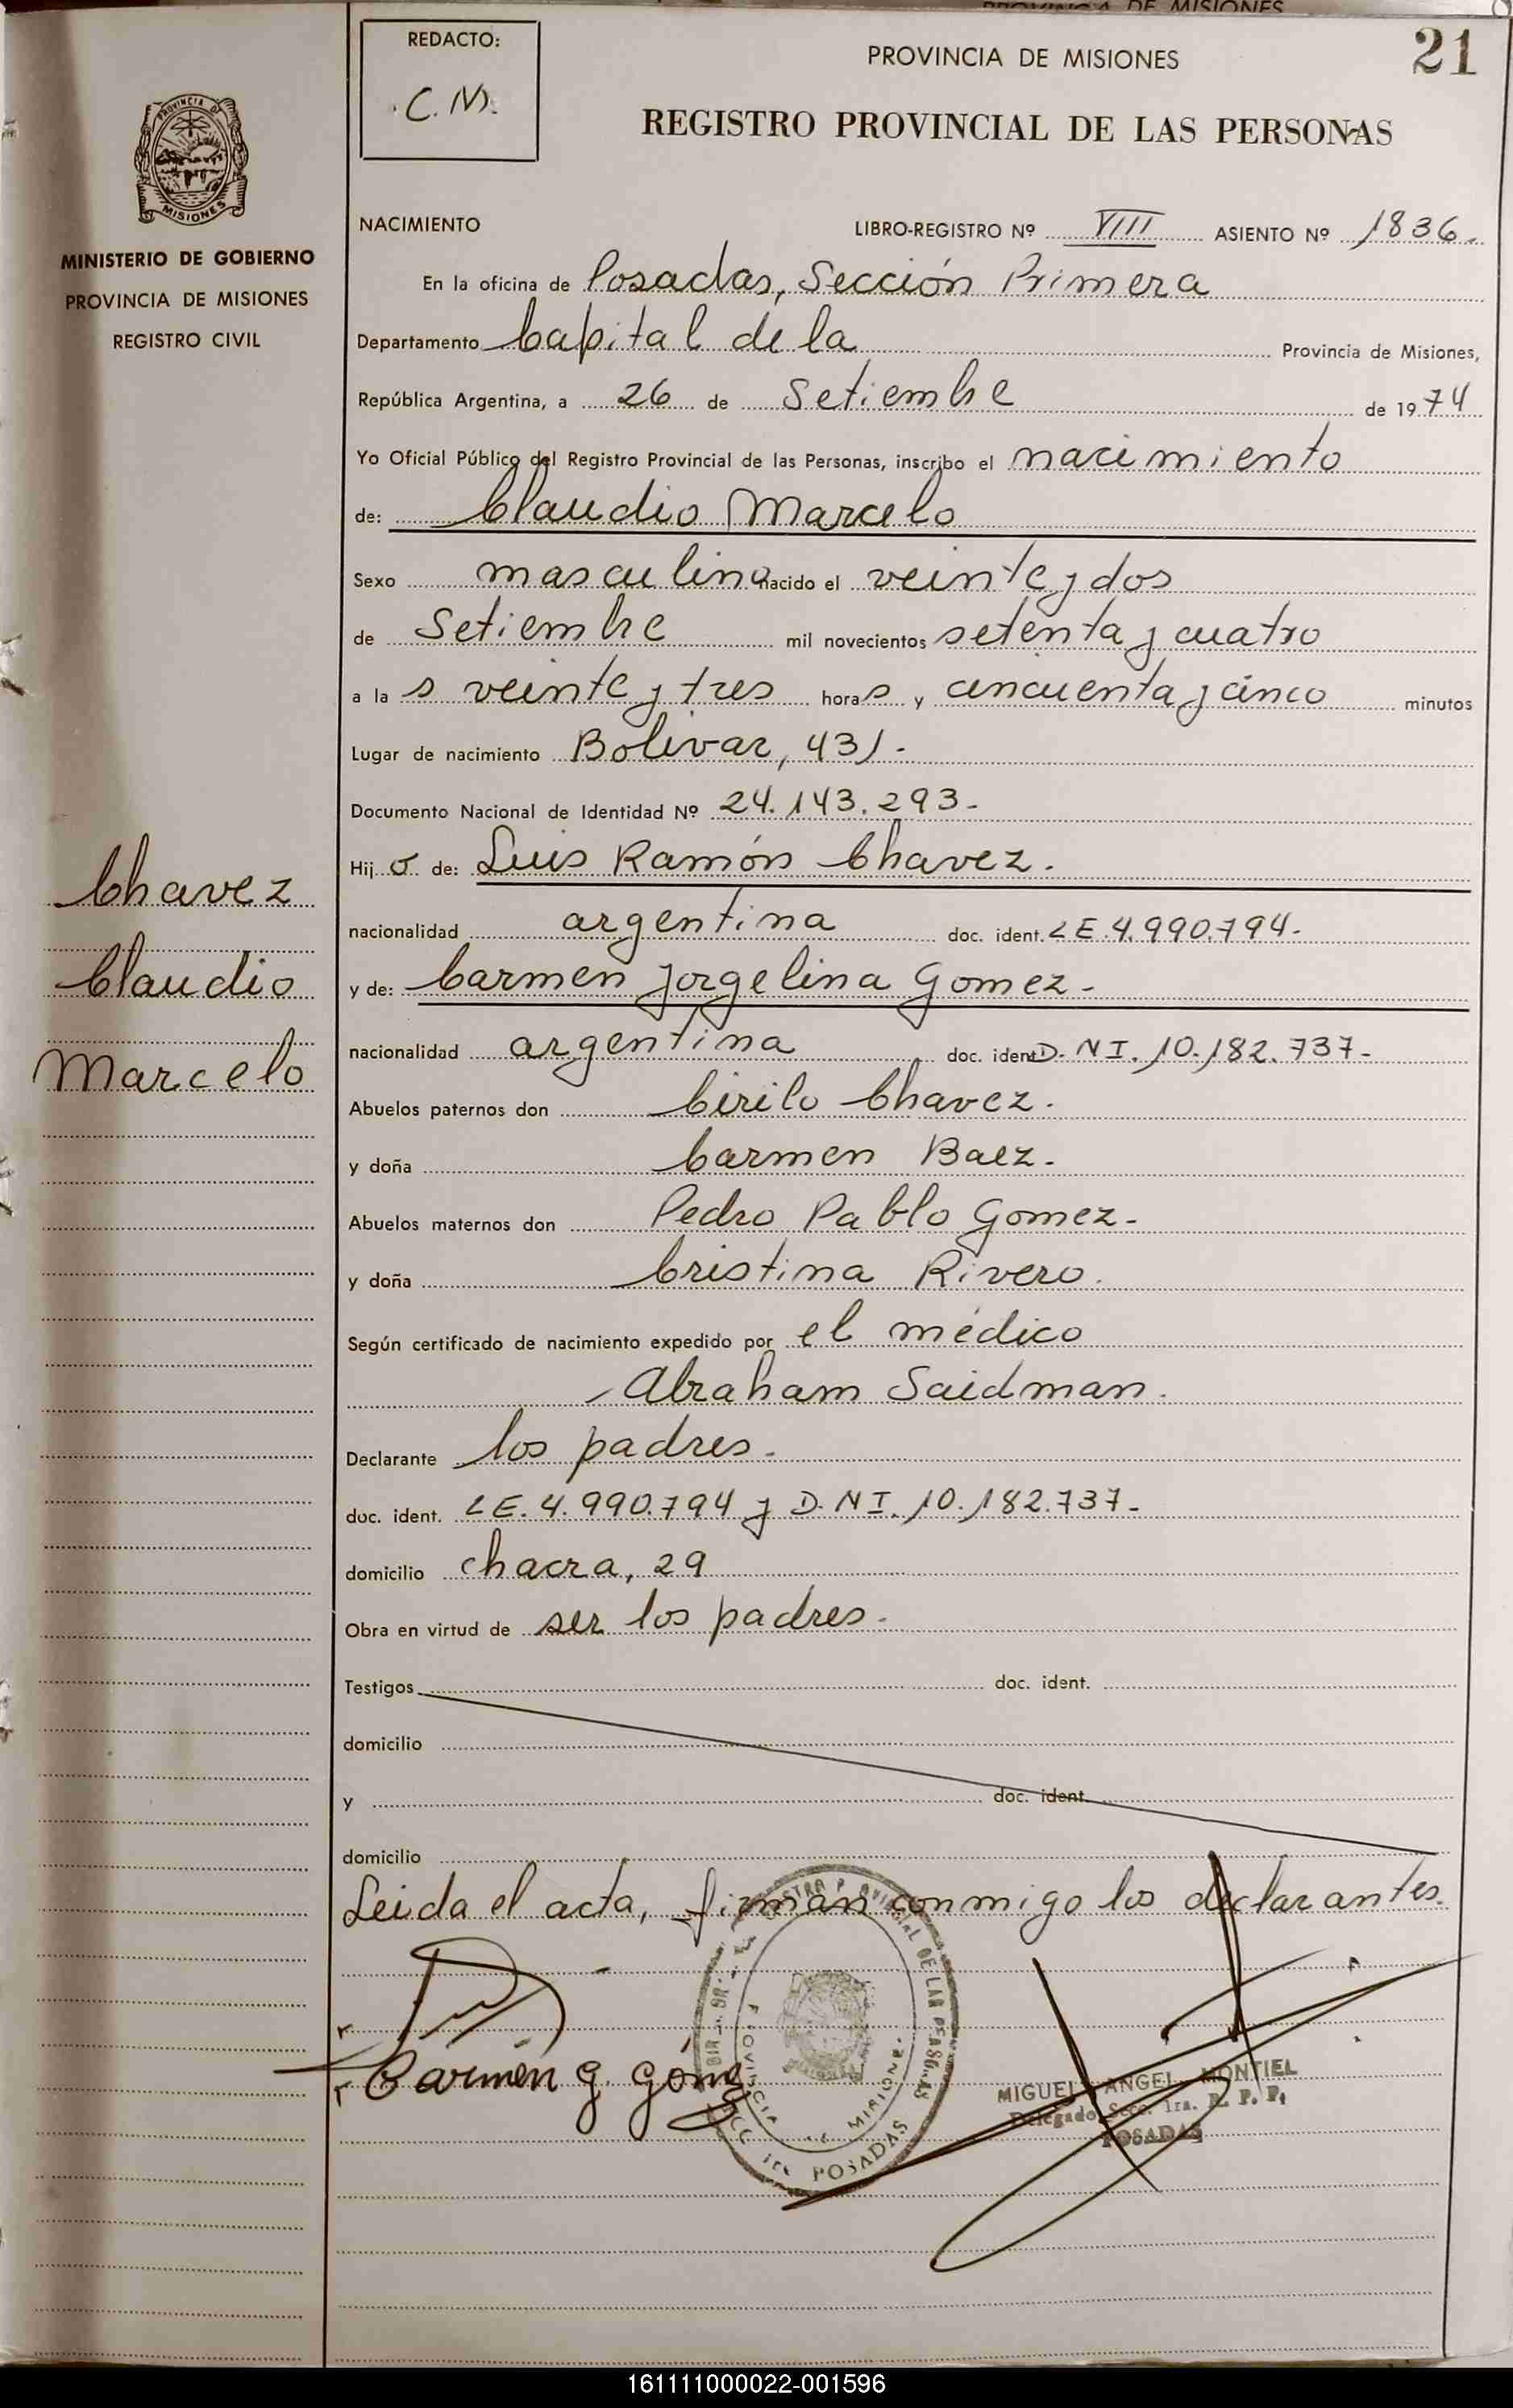 PROVINCIA DE MISIONES
REDACTO:
C.M.
PROVINCIA DE MISIONES
21
REGISTRO PROVINCIAL DE LAS PERSONAS
PROVINCIA DE
MISIONES
MINISTERIO DE GOBIERNO
PROVINCIA DE MISIONES
REGISTRO CIVIL
NACIMIENTO LIBRO-REGISTRO Nº VIII ASIENTO Nº 1836.
En la oficina de Posadas, Sección Primera
Departamento Capital de la Provincia de Misiones,
República Argentina, a 26 de Setiembre de 1974
Yo Oficial Público del Registro Provincial de las Personas, inscribo el nacimiento
de: Claudio Marcelo
Sexo masculino nacido el veinte y dos
de Setiembre mil novecientos setenta y cuatro
a las veinte y tres horas y cincuenta y cinco minutos
Lugar de nacimiento Bolivar, 431.-
Documento Nacional de Identidad Nº 24.143.293-
Hijo de: Luis Ramón Chavez.
nacionalidad argentina doc. ident. LE.4.990.794-
y de: Carmen Jorgelina Gomez-
nacionalidad argentina doc. ident D.NI. 10.182.737-
Abuelos paternos don Cirilo Chavez.
y doña Carmen Baez.
Abuelos maternos don Pedro Pablo Gomez-
y doña Cristina Rivero.
Según certificado de nacimiento expedido por el médico
Abraham Saidman.
Declarante los padres.
doc. ident. LE.4.990.794 y D.NI. 10.182.737-
domicilio chacra, 29
Obra en virtud de ser los padres.
Testigos doc. ident.
domicilio
y doc. ident.
domicilio
Leida el acta, firman conmigo los declarantes.
Chavez
Claudio
Marcelo
Carmen g. góm
POSADAS
MIGUEL ANGEL MONTIEL
Delegado Secc. 1ra. R. P. P.
POSADAS
161111000022-001596